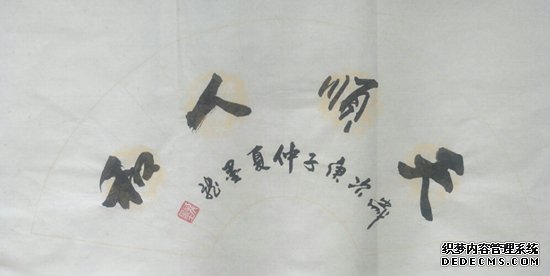 天順人和
歲次庚子仲夏墨龍
织梦内容管理系统
DEDECMS.COM